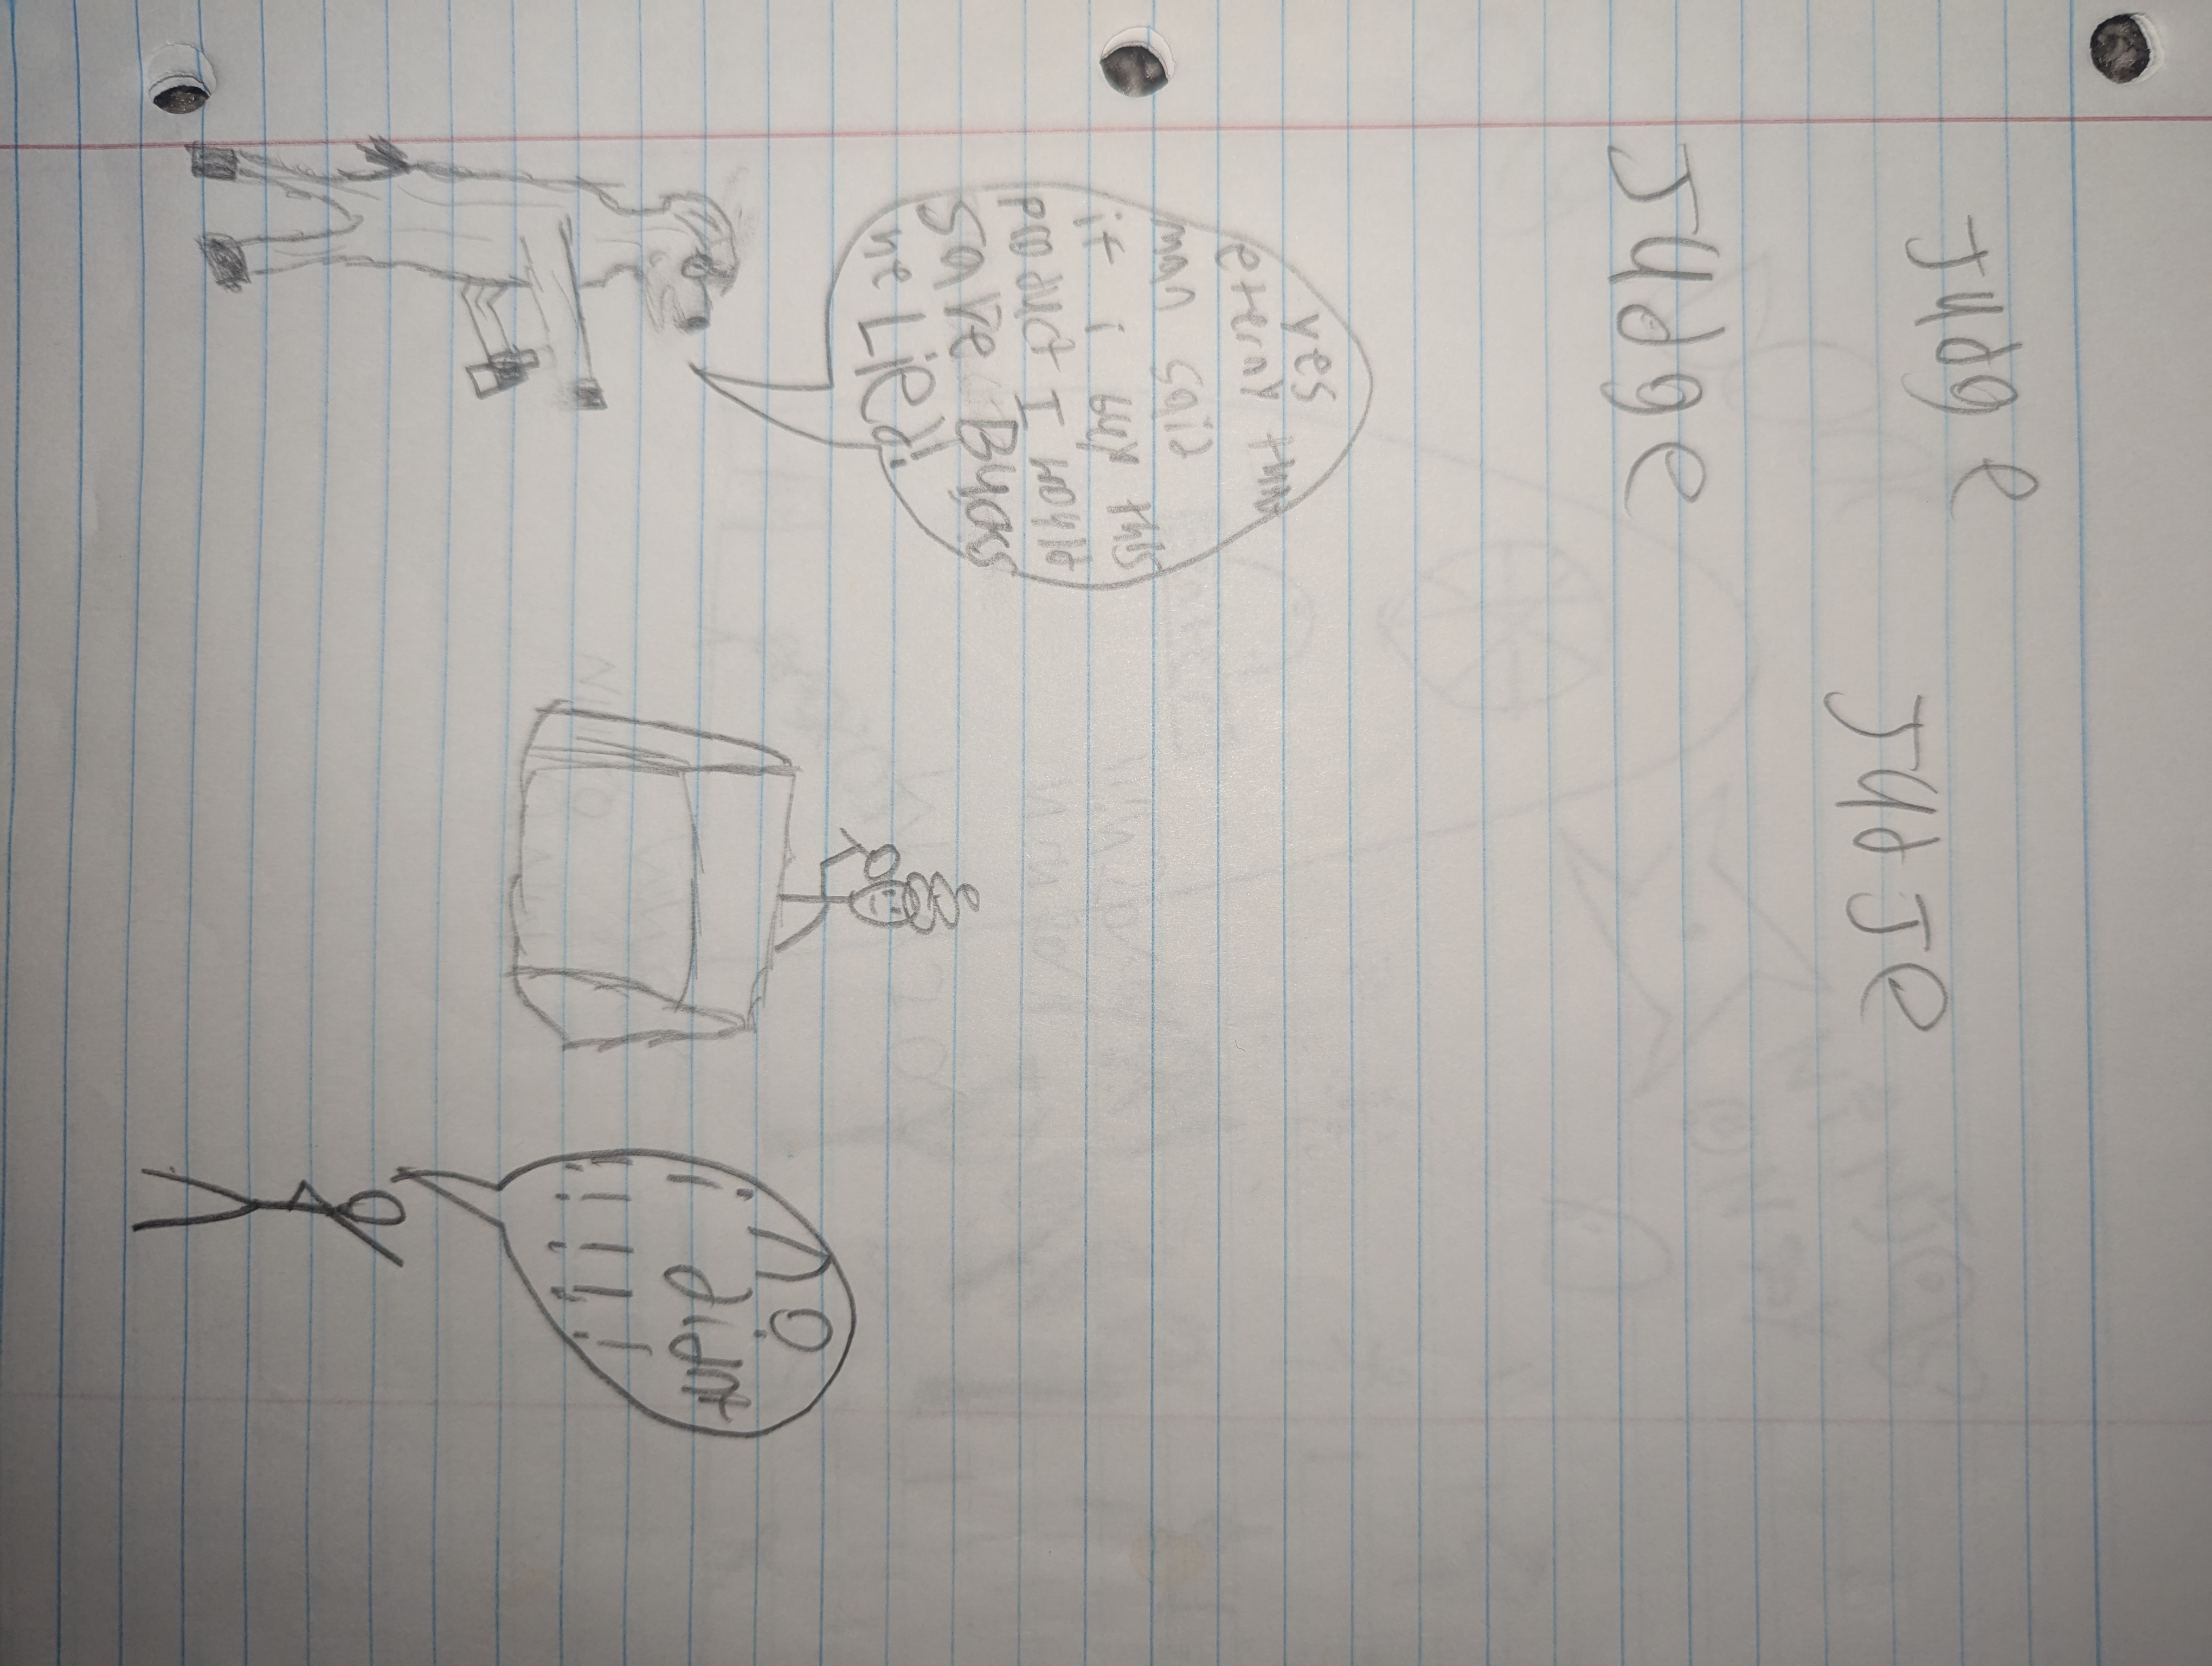 Judge
JudJe
Judge
yes
eterny that
man said
if i buy this
product I would
save Bucks
he Lied!
no
i didnt
!!!!!